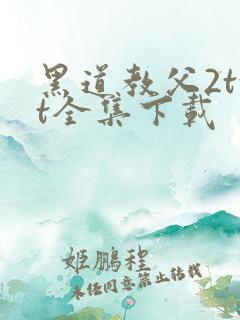 黑道教父2tx
t全集下载
姬鹏程
未经同意禁止转载